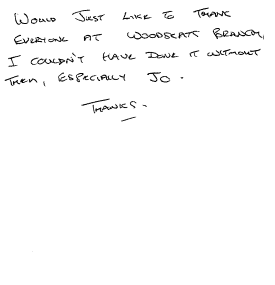 WOULD JUST LIKE TO THANK
EVERYONE AT WOODSEATS BRANCH,
I COULDN'T HAVE DONE IT WITHOUT
THEM, ESPECIALLY JO.
THANKS.